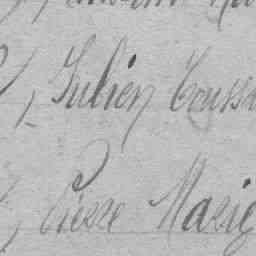 Julien Touss
Pierre Marie